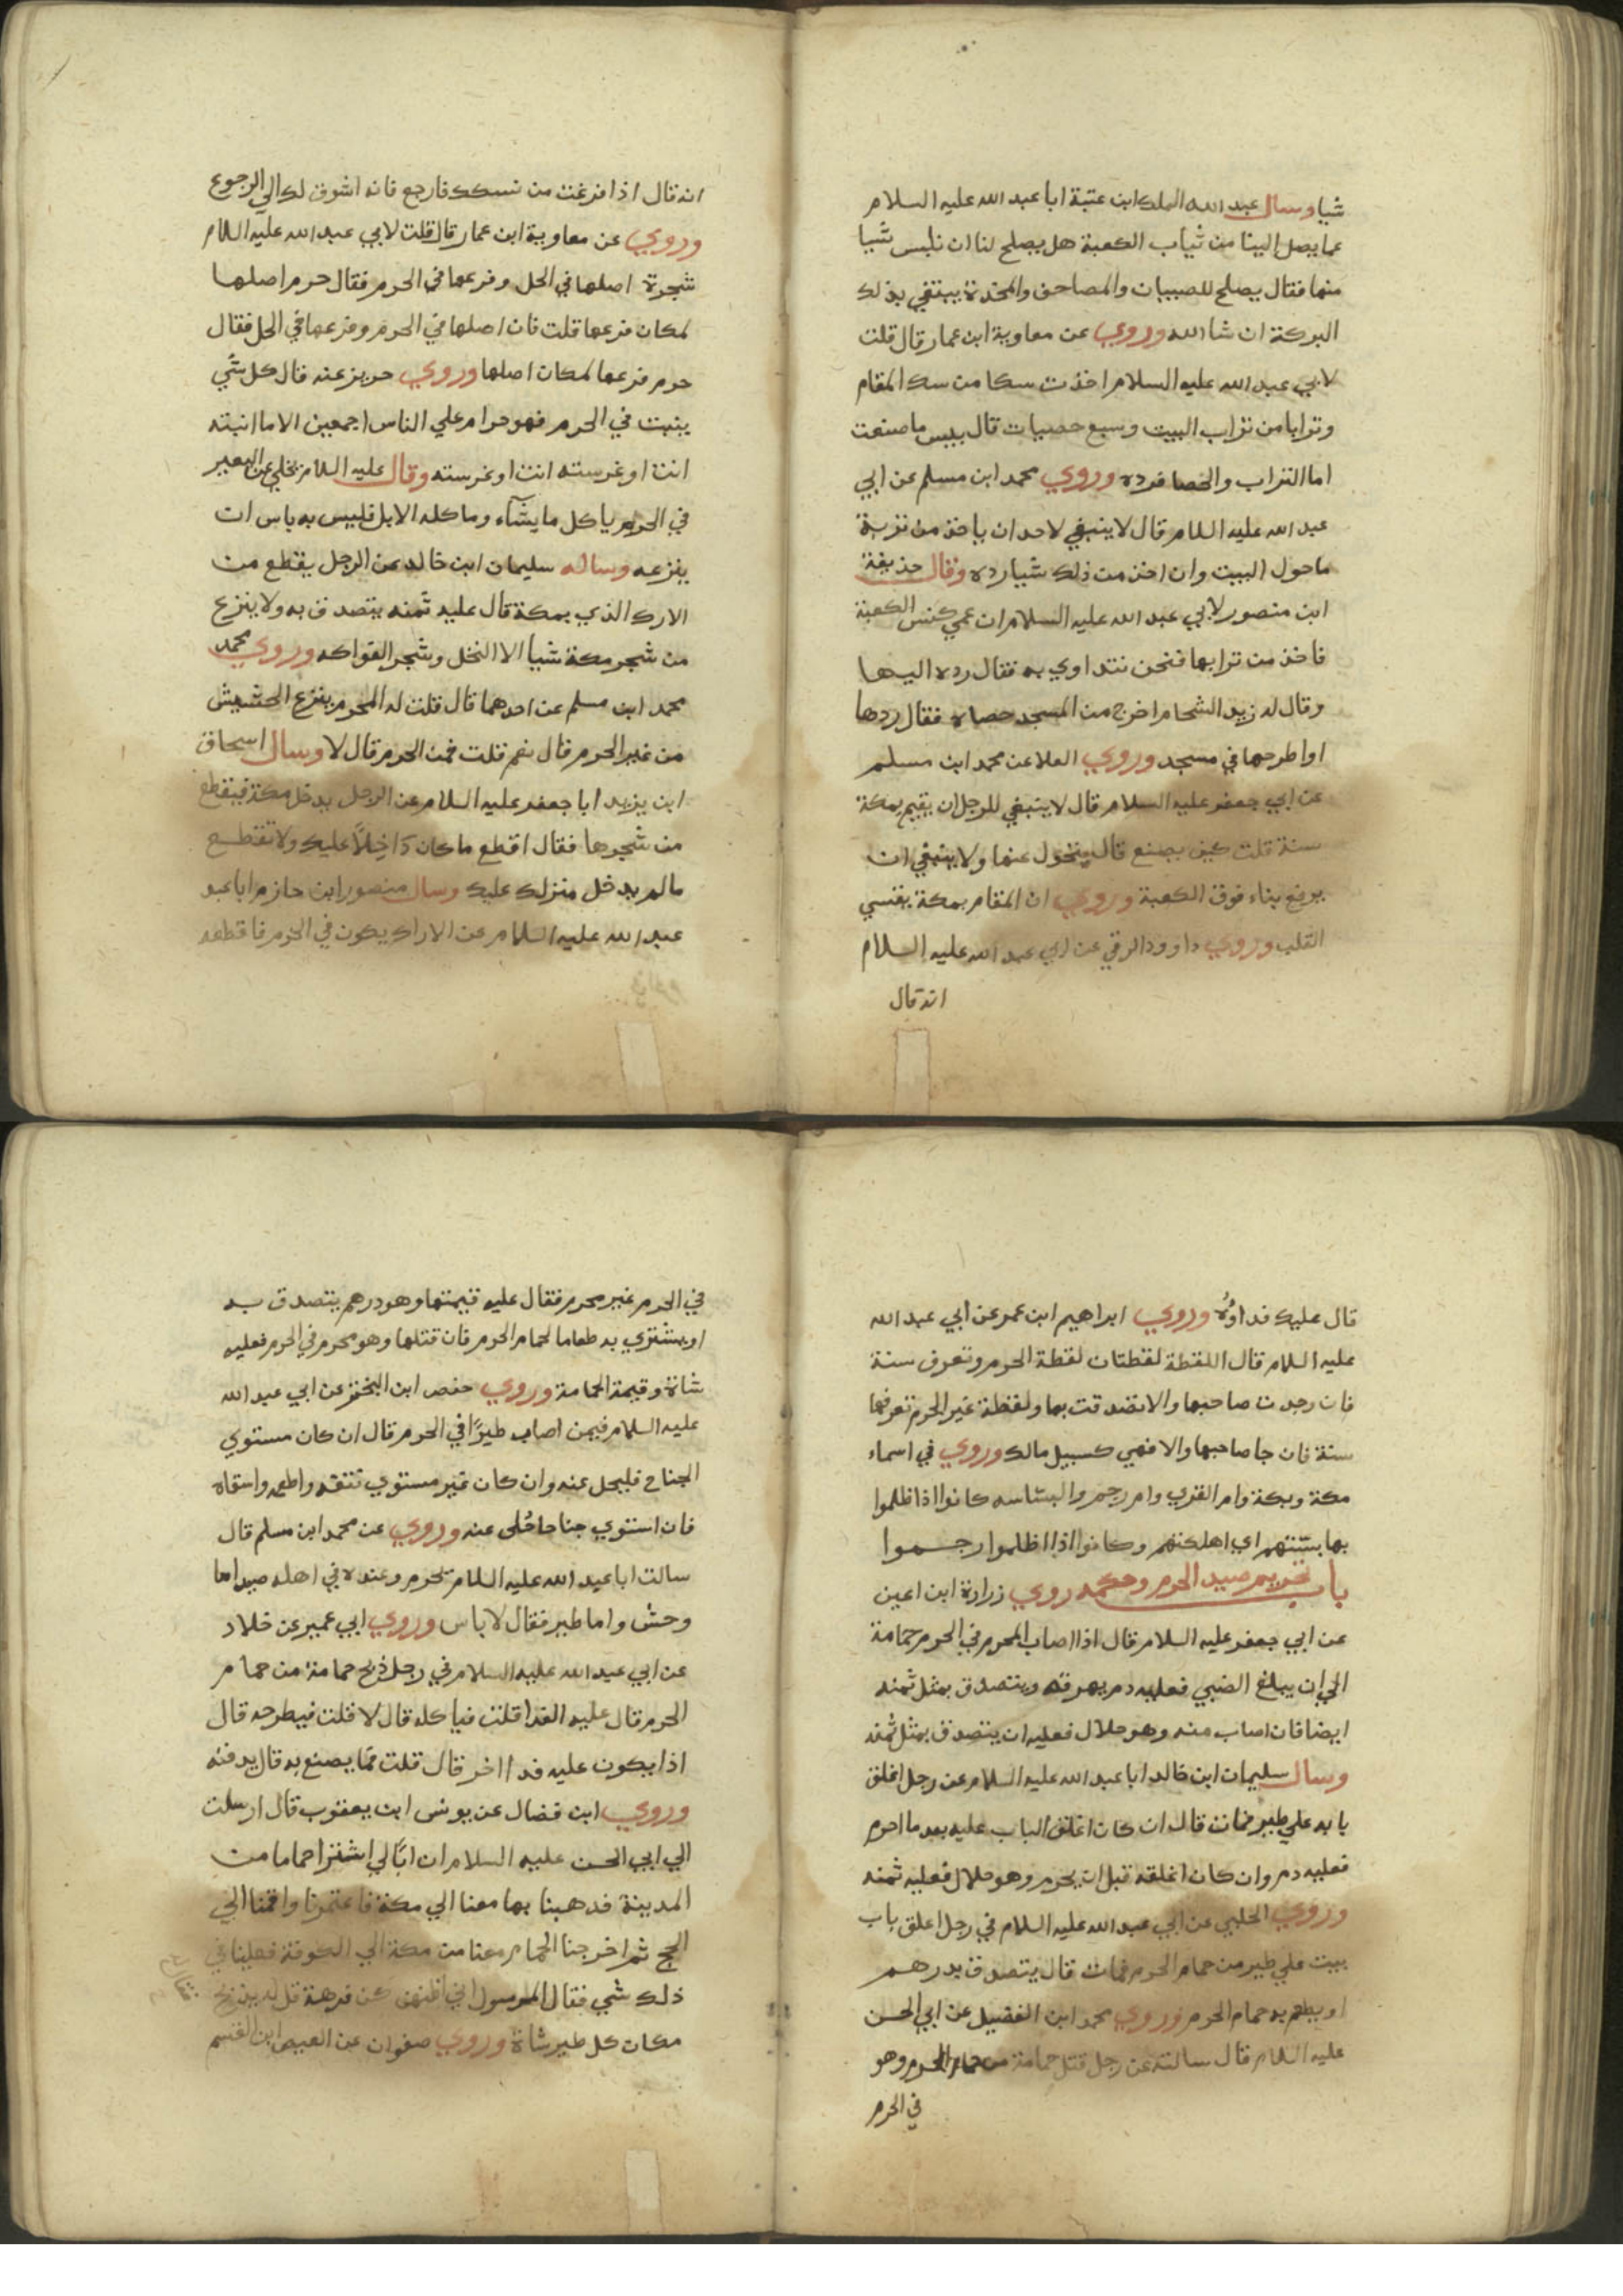 شيا وسال عبد الله الملك ابن عتبة ابا عبد الله عليه السلام
عما يصل الينا من ثياب الكعبة هل يصلح لنا ان نلبس شيا
منها فقال يصلح للصبيان والمصاحف والمخدة يبتغي بذلك
البركة ان شا الله وروي عن معاوية ابن عمار قال قلت
لابي عبد الله عليه السلام اخذت سكا من سك المقام
وترابا من تراب البيت وسبع حصيات قال بيس ما صنعت
اما التراب والحصا فرده وروي محمد ابن مسلم عن ابي
عبد الله عليه السلام قال لا ينبغي لاحد ان ياخذ من تربة
ما حول البيت وان اخذ من ذلك شيا رده وقال حذيفة
ابن منصور لابي عبد الله عليه السلام ان عمي كنس الكعبة
فاخذ من ترابها فنحن نتداوي به فقال رده اليها
وقال له زيد الشحام اخرج من المسجد حصاه فقال ردها
او اطرحها في مسجد وروي العلا عن محمد ابن مسلم
عن ابي جعفر عليه السلام قال لا ينبغي للرجل ان يقيم بمكة
سنة قلت كيف يصنع قال يتحول عنها ولا ينبغي ان
يرفع بناء فوق الكعبة وروي ان المقام بمكة يقسي
القلب وروي داوود الرقي عن ابي عبد الله عليه السلام
انه قال
انه قال اذا فرغت من نسكك فارجع فانه اشوق لك الي الرجوع
وروي عن معاوية ابن عمار قال قلت لابي عبد الله عليه السلام
شجرة اصلها في الحل وفرعها في الحرم فقال حرم اصلها
لمكان فرعها قلت فان اصلها في الحرم وفرعها في الحل فقال
حرم فرعها لمكان اصلها وروي حريز عنه قال كل شي
ينبت في الحرم فهو حرام علي الناس اجمعين الا ما انبته
انت او غرسته انت او غرسته وقال عليه السلام يخلي عن البعير
في الحرم ياكل ما يشآء وما كله الابل فليس به باس ان
ينزعه وساله سليمان ابن خالد عن الرجل يقطع من
الارك الذي بمكة قال عليه ثمنه يتصدق به ولا ينزع
من شجر مكة شيا الا النخل وشجر الفواكه وروي محمد
محمد ابن مسلم عن احدهما قال قلت له المحرم ينزع الحشيش
من غير الحرم قال نعم قلت فمن الحرم قال لا وسال اسحاق
ابن يزيد ابا جعفر عليه السلام عن الرجل يدخل مكة فيقطع
من شجرها فقال اقطع ما كان دَاخِلاً عليك ولا تقطع
ما لم يدخل منزلك عليك وسال منصور ابن حازم ابا عبد
عبد الله عليه السلام عن الاراك يكون في الحرم فاقطعه
قال عليك فداوُه وروي ابراهيم ابن عمر عن ابي عبد الله
عليه السلام قال اللقطة لقطتان لقطة الحرم وتعرف سنة
فان وجدت صاحبها والا تصدقت بها ولقطة غير الحرم تعرفها
سنة فان جا صاحبها والا فهي كسبيل مالك وروي في اسماء
مكة وبكة وام القري وام رحم والبساسه كانوا اذا ظلموا
بها بستتهم اي اهلكتهم وكانوا اذا اظلموا رحموا
باب تحريم صيد الحرم وحكمه روي زرارة ابن اعين
عن ابي جعفر عليه السلام قال اذا اصاب المحرم في الحرم حمامة
الي ان يبلغ الضبي فعليه دم يهرقه ويتصدق بمثل ثمنه
ايضا فان اصاب منه وهو حلال فعليه ان يتصدق بمثل ثمنه
وسال سليمان ابن خالد ابا عبد الله عليه السلام عن رجل اغلق
بابه علي طير فمات قال ان كان اغلق الباب عليه بعد ما احرم
فعليه دم وان كان اغلقه قبل ان يحرم وهو حلال فعليه ثمنه
وروي الحلبي عن ابي عبد الله عليه السلام في رجل اغلق باب
بيت علي طير من حمام الحرم فمات قال يتصدق بدرهم
او يطعم به حمام الحرم وروي محمد ابن الفضيل عن ابي الحسن
عليه السلام قال سالته عن رجل قتل حمامة من حمام الحرم وهو
في الحرم
في الحرم غير محرم فقال عليه قيمتها وهو درهم يتصدق به
او يشتري به طعاما لحمام الحرم فان قتلها وهو محرم في الحرم فعليه
شاة وقيمة الحمامة وروي حفص ابن البختر عن ابي عبد الله
عليه السلام فيمن اصاب طيرًا في الحرم قال ان كان مستوي
الجناح فليحل عنه وان كان غير مستوي نتفه واطعمه واسقاه
فان استوي جناحا خلى عنه وروي عن محمد ابن مسلم قال
سالت ابا عبد الله عليه السلام محرم وعنده في اهله صيد اما
وحش واما طير فقال لا باس وروي ابي عمير عن خلاد
عن ابي عبد الله عليه السلام في رجل ذبح حمامة من حمام
الحرم قال عليه الفدا قلت فياكله قال لا قلت فيطرحه قال
اذا يكون عليه فدا اخر قال قلت فما يصنع به قال يدفنه
وروي ابن فضال عن يونس ابن يعقوب قال ارسلت
الي ابي الحسن عليه السلام ان ابًا لي اشترا حماما من
المدينة فدهبنا بها معنا الي مكة فاعتمرنا واقمنا الي
الحج ثم اخرجنا الحمام معنا من مكة الي الكوفة فعلينا في
ذلك شي فقال للرسول اني اظنهن كن فرهة قل له يذبح
مكان كل طير شاة وروي صفوان عن العيص ابن القسم